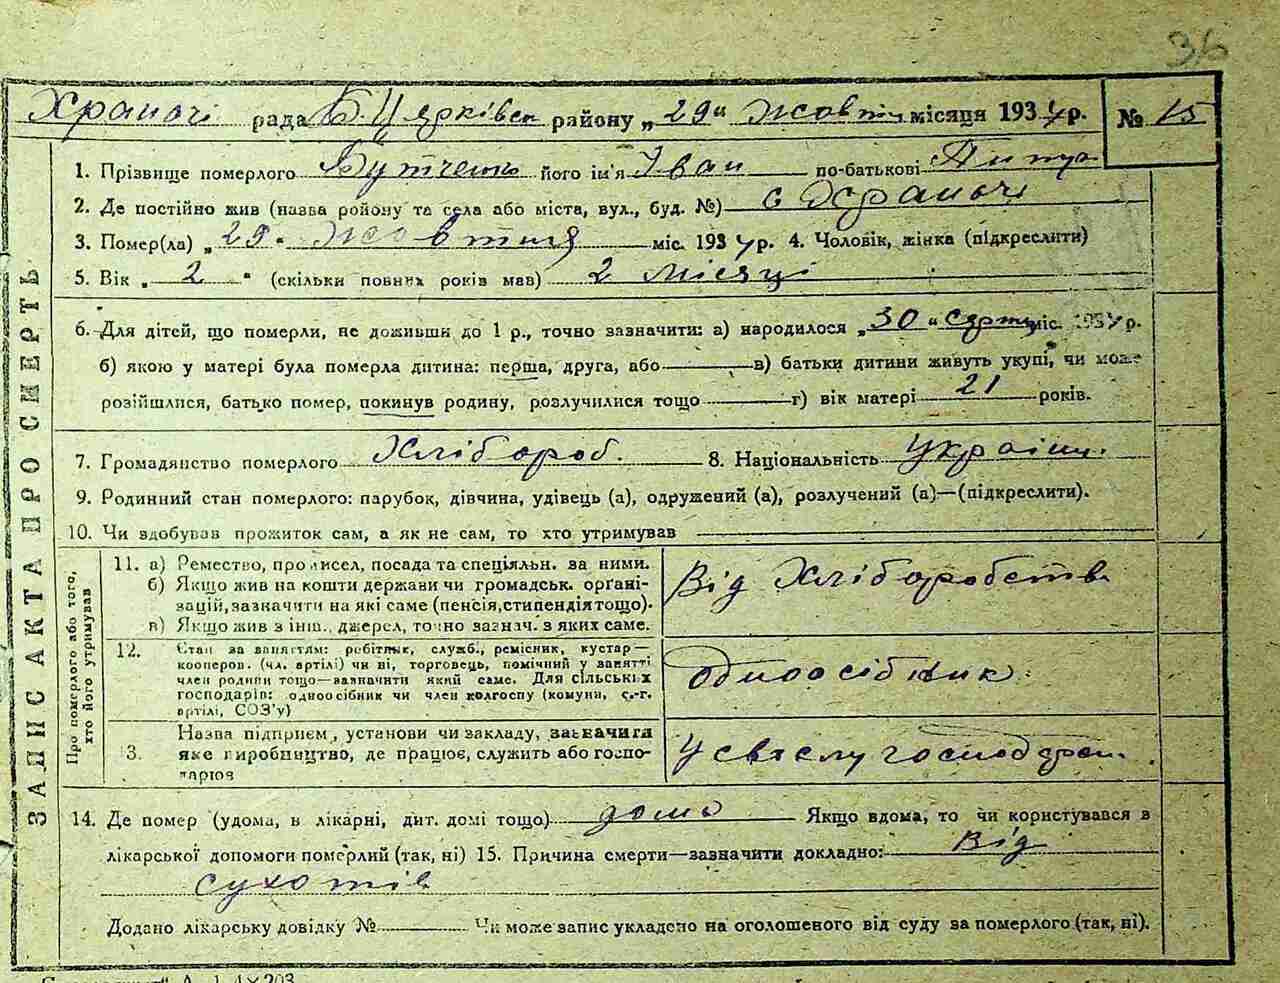 36
Храпачі рада Б. Церківськ району „29" Жовтня місяця 1934 р. № 15
ЗАПИС АКТА ПРО СМЕРТЬ
1. Прізвище померлого Бутченко його ім'я Іван по-батькові
2. Де постійно жив (назва району та села або міста, вул., буд. №) с Храпачі
3. Помер(ла) „29" жовтня міс. 1934 р. 4. Чоловік, жінка (підкреслити)
5. Вік „2" (скільки повних років мав) 2 місяці
6. Для дітей, що померли, не доживши до 1 р., точно зазначити: а) народилося „30" серпня міс. 1934 р.
б) якою у матері була померла дитина: перша, друга, або в) батьки дитини живуть укупі, чи може
розійшлися, батько помер, покинув родину, розлучилися тощо г) вік матері 21 років.
7. Громадянство померлого Хлібороб. 8. Національність Україн.
9. Родинний стан померлого: парубок, дівчина, удівець (а), одружений (а), розлучений (а)—(підкреслити).
10. Чи здобував прожиток сам, а як не сам, то хто утримував
Про померлого або того, хто його утримував
11. а) Ремество, промисел, посада та спеціяльн. за ними.
б) Якщо жив на кошти держави чи громадськ. орґані-
зацій, зазначити на які саме (пенсія, стипендія тощо).
в) Якщо жив з інш. джерел, точно зазнач. з яких саме.
Від Хліборобств.
12. Стан за заняттям: робітник, служб., ремісник, кустар—
кооперов. (чл. артілі) чи ні, торговець, помічний у занятті
член родини тощо—зазначити який саме. Для сільських
господарів: одноосібник чи член колгоспу (комуни, с.-г.
артілі, СОЗ'у)
одноосібник.
13. Назва підприєм., установи чи закладу, зазначити
яке виробництво, де працює, служить або госпо-
дарює
У свойому господар.
14. Де помер (удома, в лікарні, дит. домі тощо) дома Якщо вдома, то чи користувався в
лікарської допомоги померлий (так, ні) 15. Причина смерти—зазначити докладно: Від
сухотів
Додано лікарську довідку № Чи може запис укладено на оголошеного від суду за померлого (так, ні).